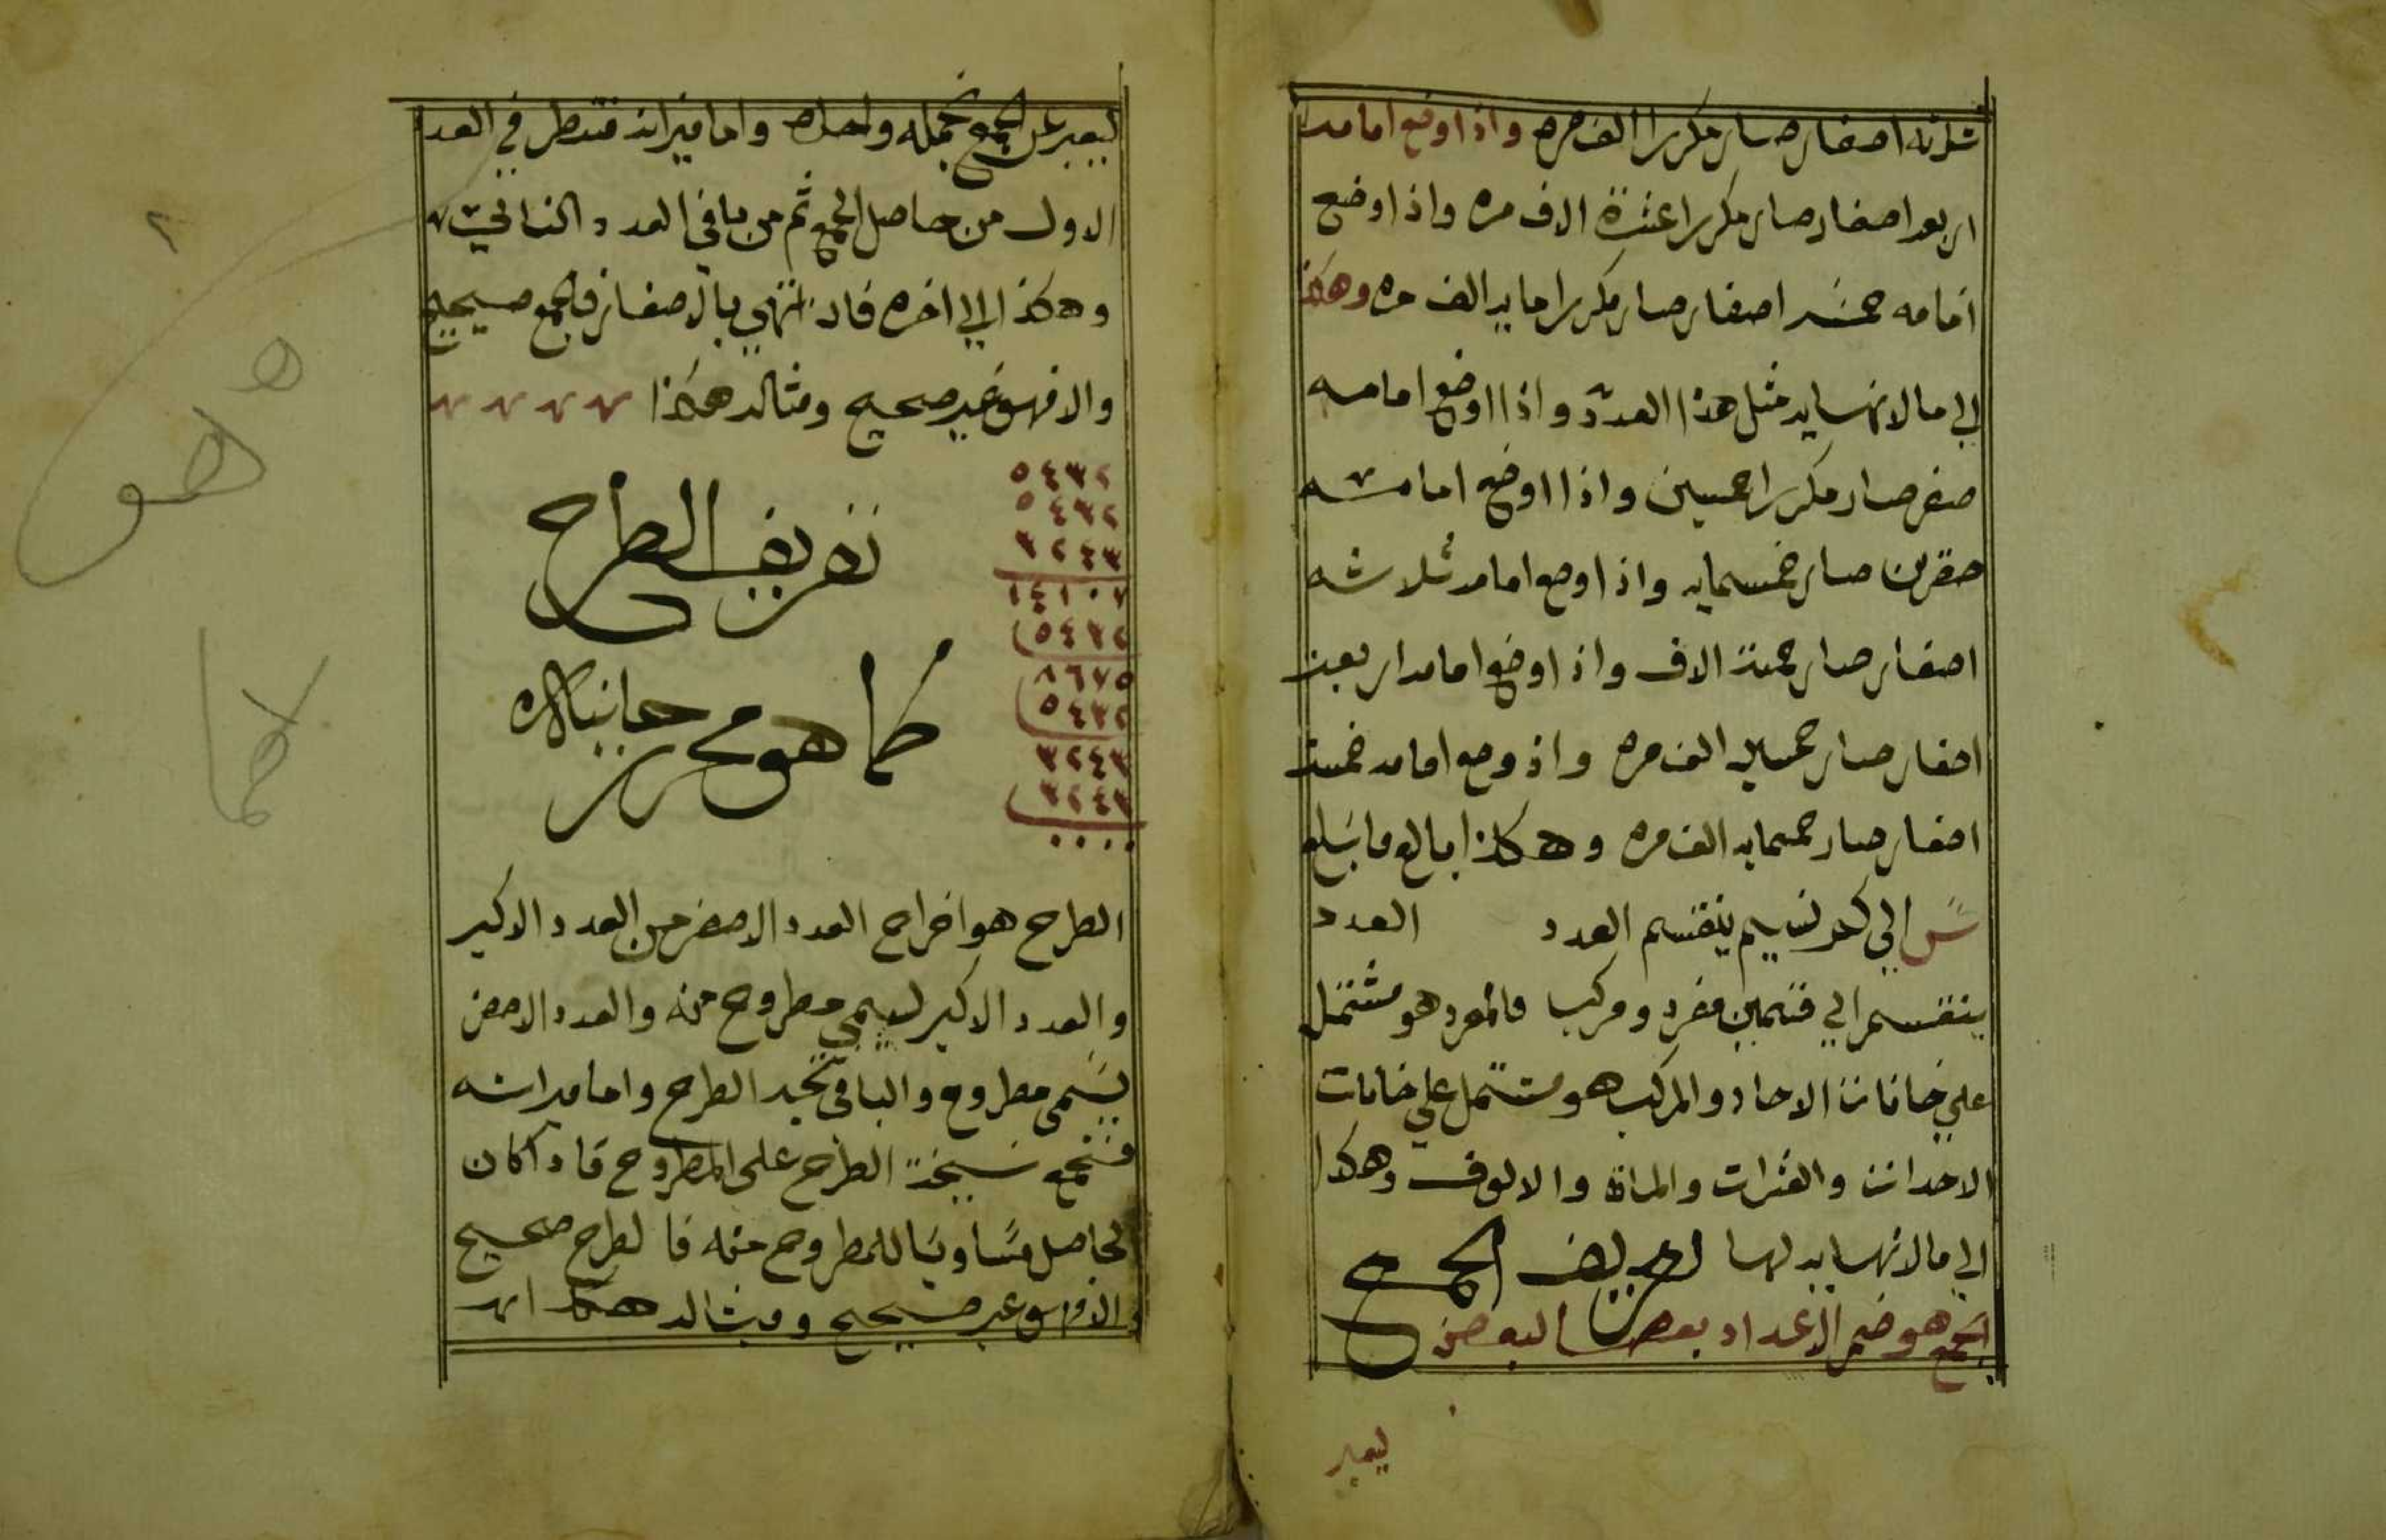 ثلاثه اصفار صار مكررا الف مره واذا وضع امامه
اربعه اصفار صار مكررا عشرة الاف مره واذا وضع
امامه خمسه اصفار صار مكررا مايه الف مره وهكذا
الي مالا نهايه مثل هذا العدد واذا اوضع امامه
صفر صار مكررا خمسين واذا اوضع امامه
صفرين صار خمسمايه واذا وضع امامه ثلاثه
اصفار صار خمسة الاف واذا وضع امامه اربعة
اصفار صار خمسين الف مره واذ وضع امامه خمسة
اصفار صار خمسمايه الف مره وهكذا بالغ ما بلغ
س الي كم تسيم ينقسم العدد العدد
ينقسم الي قسمين مفرد ومركب فالمفرد هو مشتمل
علي خانات الاحاد والمركب هو مشتمل علي خانات
الاحدات والعشرات والمات والالوف وهكذا
الي مالا نهايه لها تعريف الجمع
الجمع هو ضم الاعداد بعضها لبعض
ليعبر
ليعبر عن الجمع بجمله واحده واما ميزانه فتطرح العدد
الاول من حاصل الجمع ثم من باقي العدد الثاني
وهكذا الي اخره فان انتهي بالاصفار فالجمع صحيح
والا فهو غير صحيح ومثاله هكذا
٥٤٣٢
٥٤٣٢
٣٢٤٣
١٤١٠٧
٥٤٣٢
٨٦٧٥
٥٤٣٢
٣٢٤٣
٣٢٤٣
٠٠٠٠
تعريف الطرح
كما هو محرر
الطرح هو اخراج العدد الاصغر من العدد الاكبر
والعدد الاكبر يسمي مطروح منه والعدد الاصغر
يسمى مطروح والباقي نتيجة الطرح واما ميزانه
فتجمع نتيجة الطرح على المطروح فاذا كان
الحاصل مساويا للمطروح منه فالطرح صحيح
والا فهو غير صحيح ومثاله هكذا
٢
هو
كما